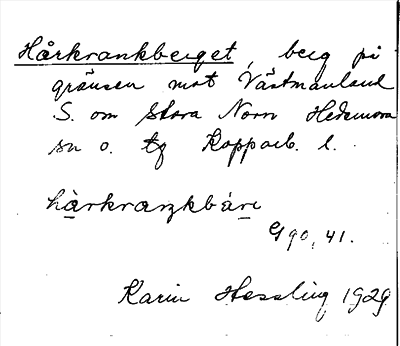 Hårkrankberget, berg på
gränsen mot Västmanland
S. om Stora Norn Hedemora
sn o. tg Kopparb. l.
hàrkraŋkbári
G 90, 41.
Karin Hessling 1929